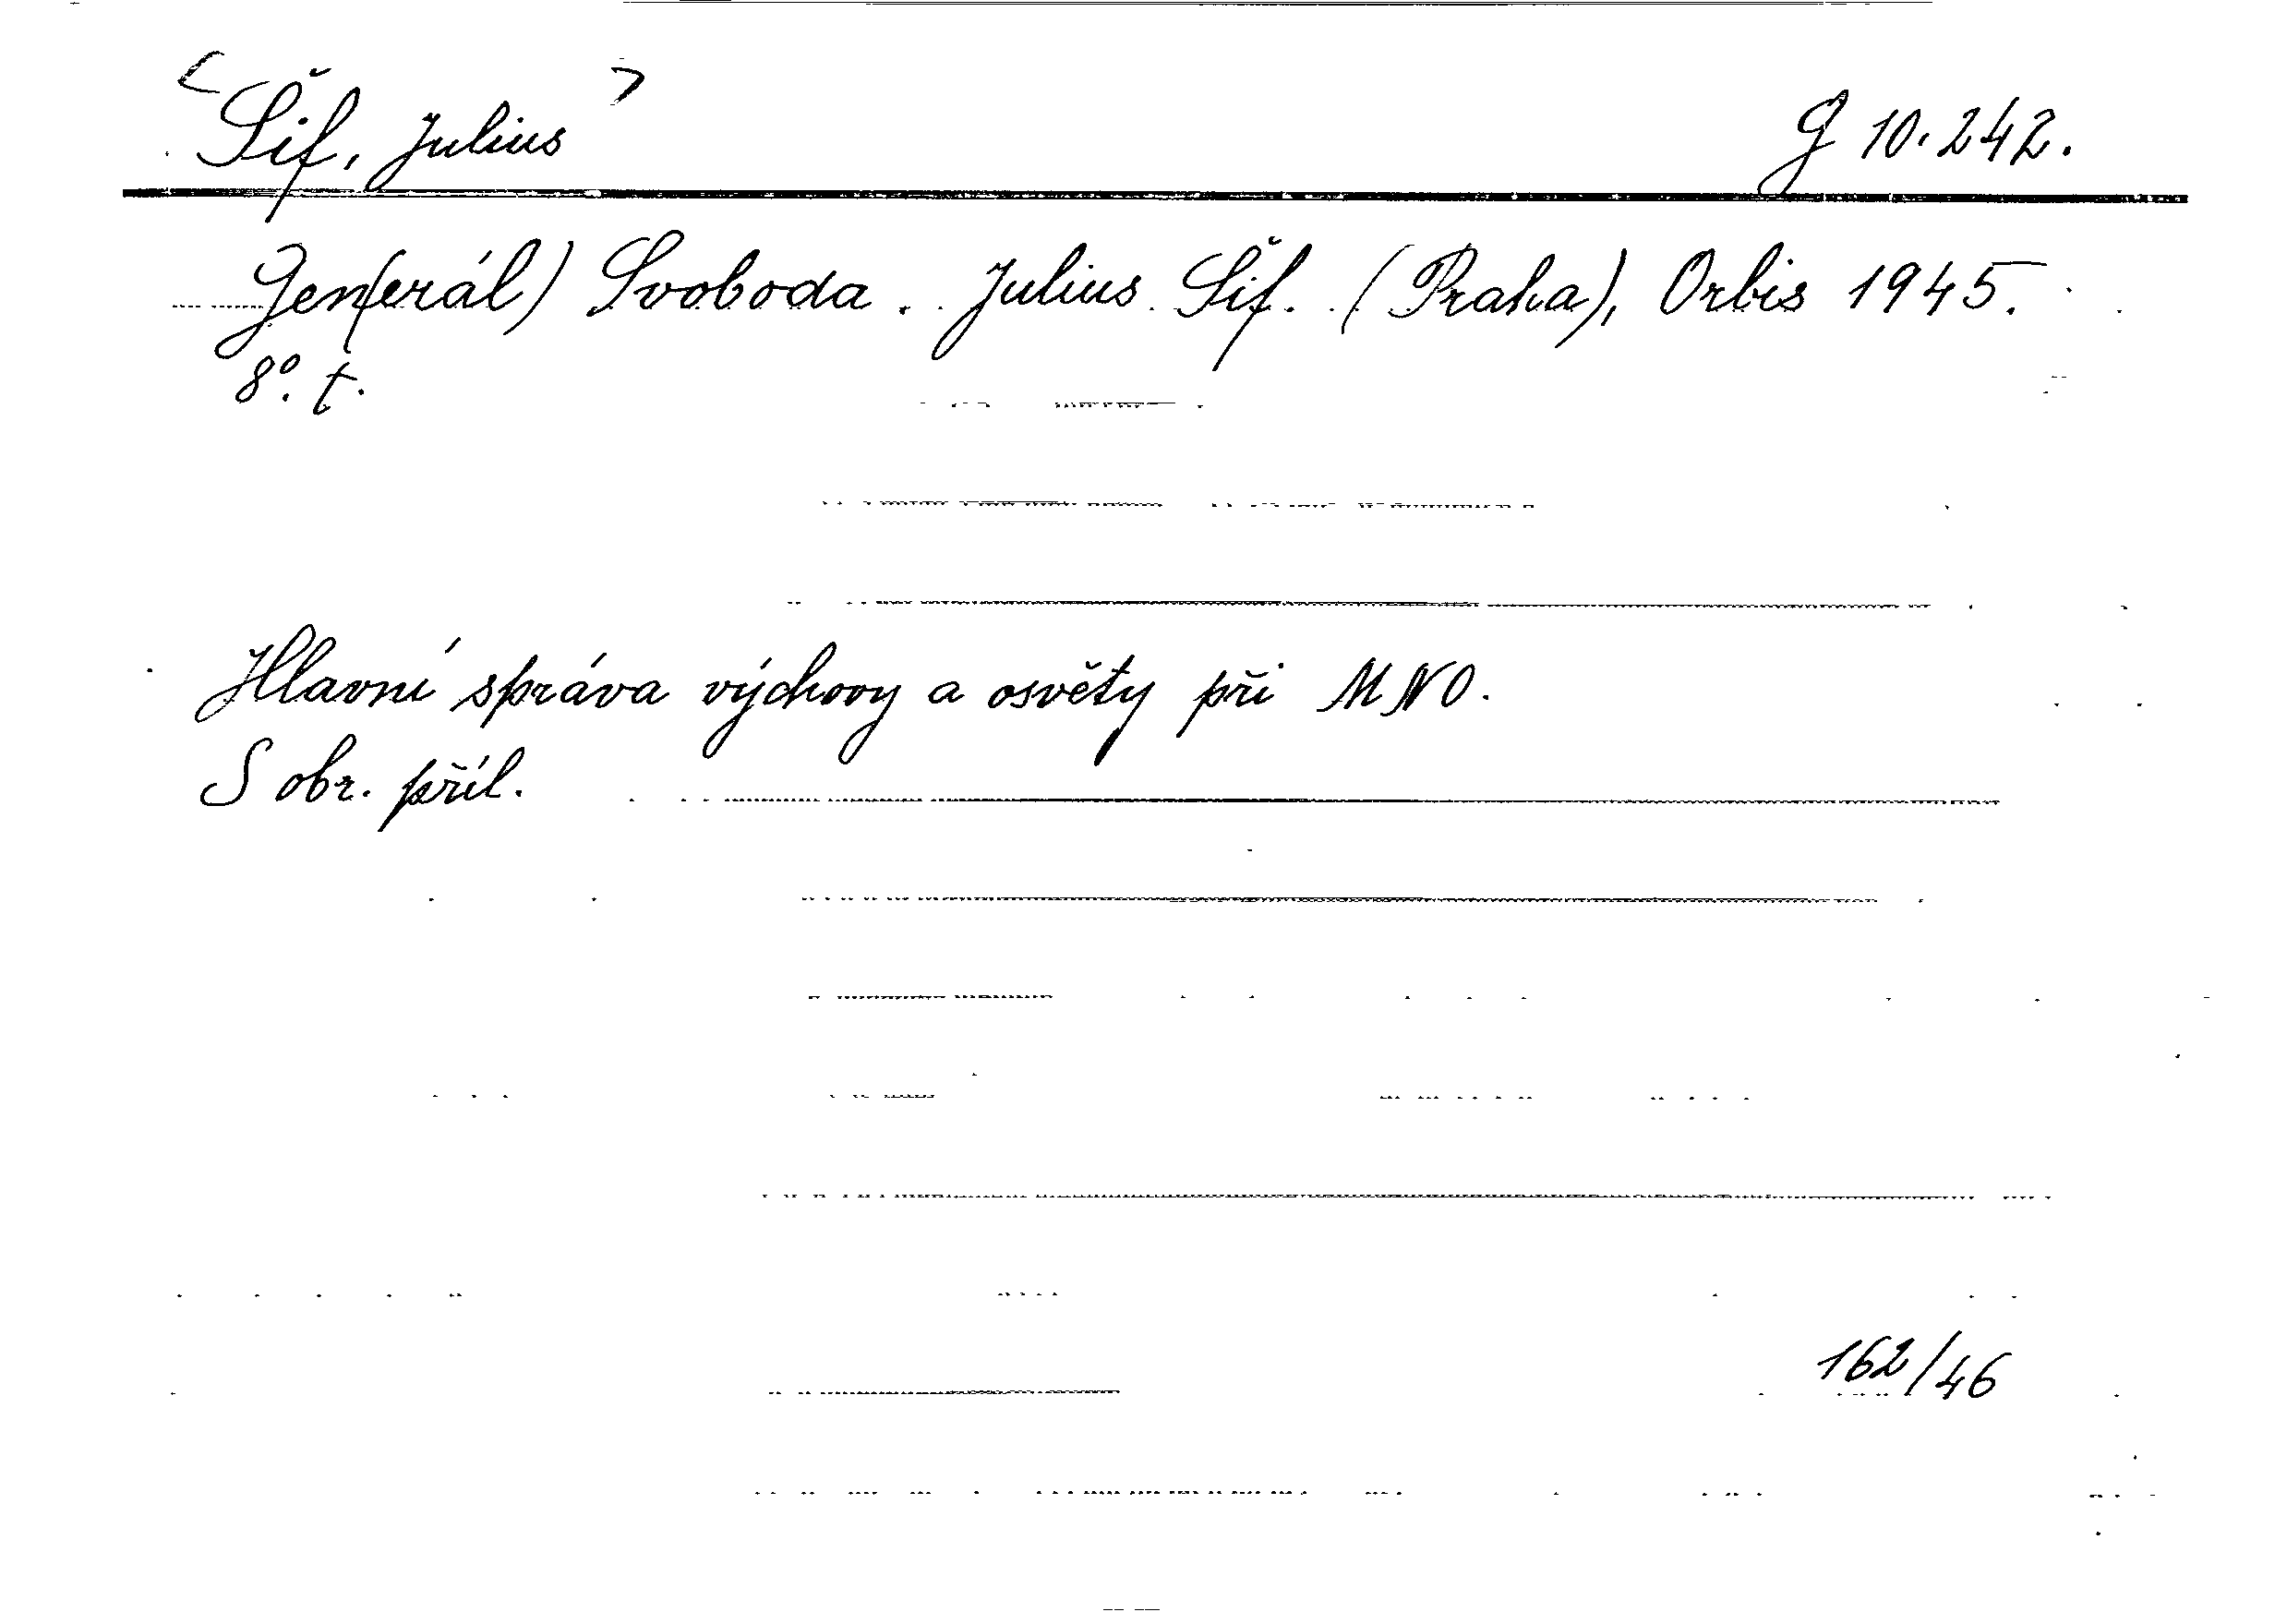 <Šif, Julius> G 10.242.
Gen(erál) Svoboda. Julius Šif. (Praha), Orbis 1945.
8°. t.
Hlavní správa výchovy a osvěty při MNO.
S obr. příl.
162/46